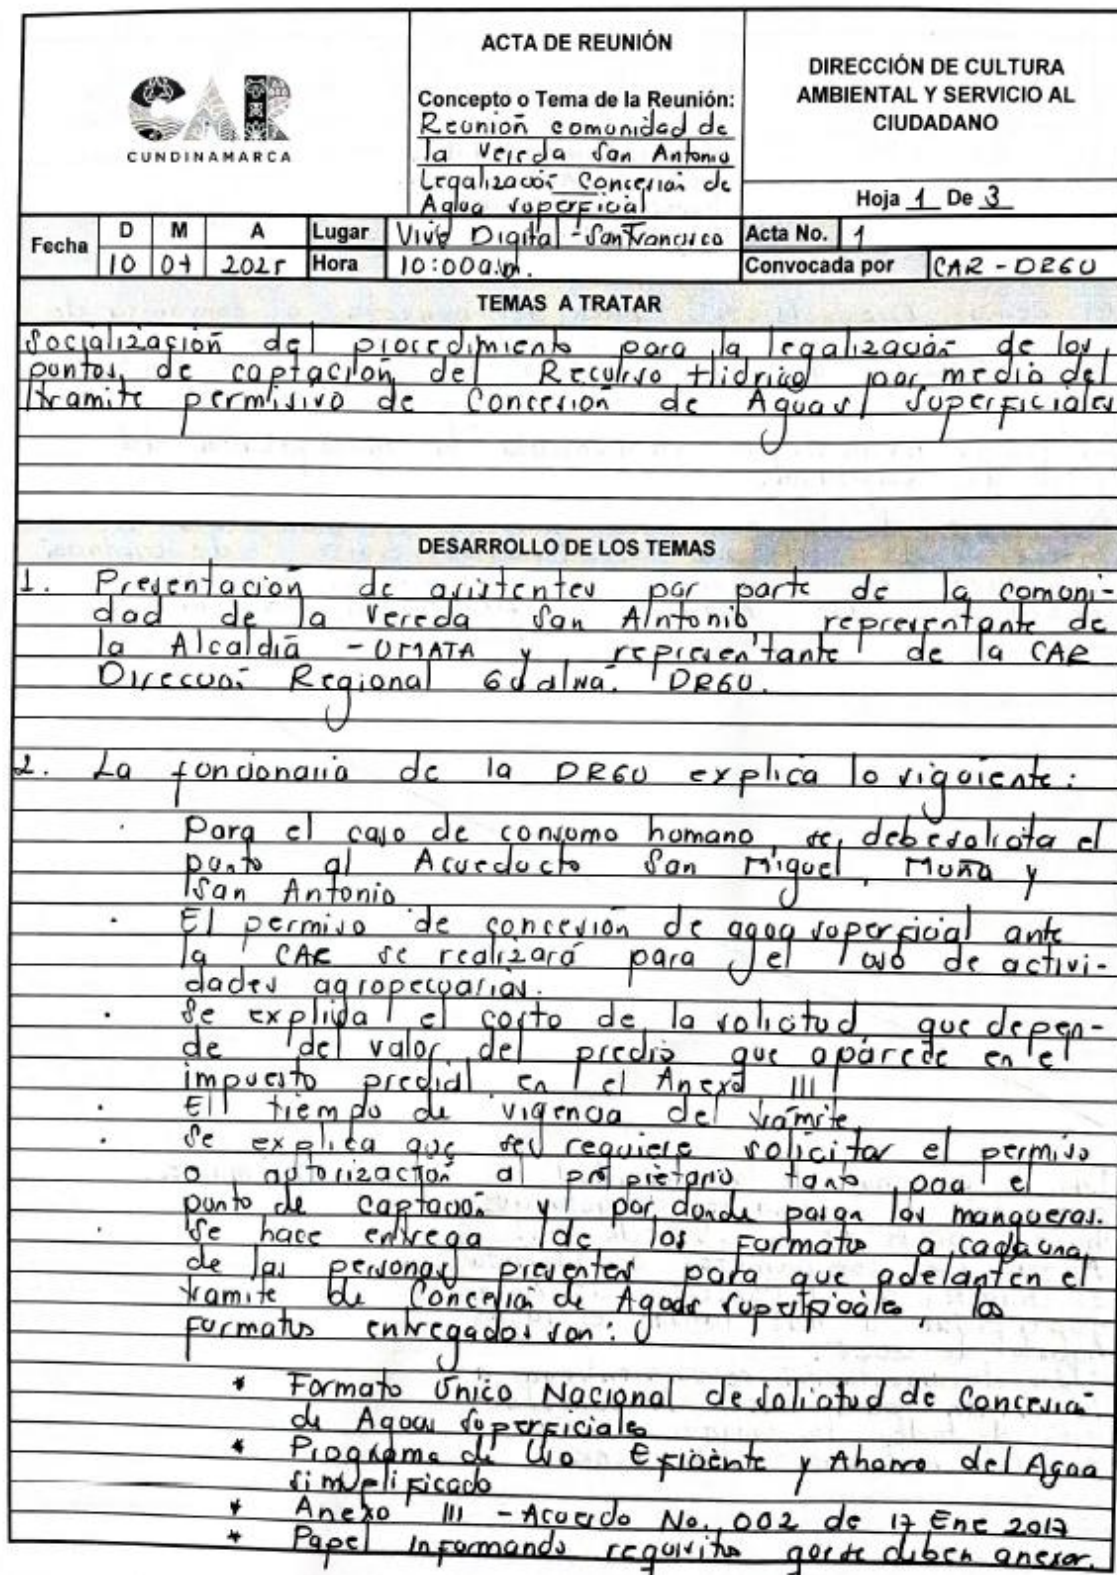 CAR
CUNDINAMARCA
ACTA DE REUNIÓN
Concepto o Tema de la Reunión:
Reunión comunidad de
la Vereda San Antonio
Legalización Concesión de
Agua superficial
DIRECCIÓN DE CULTURA
AMBIENTAL Y SERVICIO AL
CIUDADANO
Hoja 1 De 3
Fecha D M A Lugar Vive Digital - San Francisco Acta No. 1
10 04 2025 Hora 10:00a.m. Convocada por CAR - DRGU
TEMAS A TRATAR
Socialización del procedimiento para la legalización de los
puntos de captación del Recurso Hídrico por medio del
tramite permisivo de Concesión de Aguas Superficiales
DESARROLLO DE LOS TEMAS
1. Presentación de asistentes por parte de la comuni-
dad de la Vereda San Antonio representante de
la Alcaldía - UMATA y representante de la CAR
Dirección Regional Gualivá. DRGU.
2. La funcionaria de la DRGU explica lo siguiente:
· Para el caso de consumo humano, se debe solicita el
punto al Acueducto San Miguel, Muña y
San Antonio
· El permiso de concesión de agua superficial ante
la CAR se realizará para el uso de activi-
dades agropecuarias.
· Se explica el costo de la solicitud que depen-
de del valor del predio que aparece en el
impuesto predial en el Anexo III
· El tiempo de vigencia del trámite
· Se explica que se requiere solicitar el permiso
o autorización al propietario tanto paa el
punto de captación y por donde pasan las mangueras.
· Se hace entrega de los formatos a cada una
de las personas presentes para que adelanten el
tramite de Concesión de Aguas superficiales, los
formatos entregados son:
* Formato Único Nacional de solicitud de Concesión
de Aguas Superficiales
* Programa de Uso Eficiente y Ahorro del Agua
simplificado
* Anexo III - Acuerdo No. 002 de 17 Ene 2017
* Papel informando requisitos que se deben anexar.